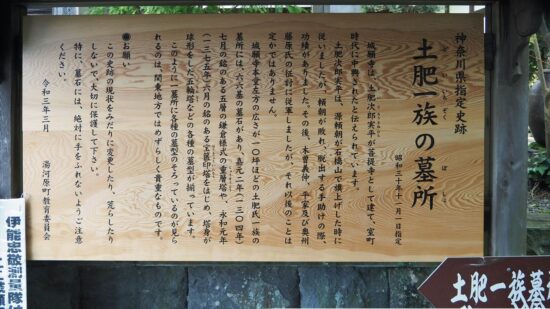 神奈川県指定史跡
土肥一族の墓所
どひいちぞく ぼしょ
昭和三十年十一月一日指定
城願寺は、土肥次郎実平が菩提寺として建て、室町
時代に中興されたと伝えられています。
土肥次郎実平は、源頼朝が石橋山で旗上げした時に
従いましたが、頼朝が敗れ、脱出する手助けの際、
功績がありました。その後、木曽義仲、平家及び奥州
藤原氏の征討に従軍しましたが、それ以後のことは
定かではありません。
城願寺本堂左方の広さが一〇坪ほどの土肥氏一族の
墓所には、六六基の墓石があり、嘉元二年(一三〇四)
七月の銘のある五層の鎌倉様式の重層塔や、永和元年
(一三七五年)六月の銘のある宝篋印塔をはじめ、塔身が
球形をした五輪塔などの各種の墓型が揃っています。
このように一墓所に各種の墓型のそろっているのが見ら
れるのは、関東地方ではめずらしく貴重なものです。
◉お願い
この史跡の現状をみだりに変更したり、荒らしたり
しないで、大切に保護して下さい。
特に、墓石には、絶対に手をふれないようご注意
ください。
令和三年三月
湯河原町教育委員会
伊能忠敬測量隊
土肥一族墓